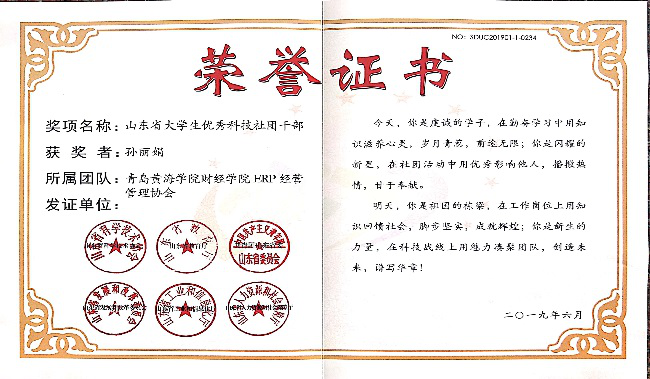 NO: SDUC201901-1-0234
荣誉证书
奖项名称：山东省大学生优秀科技社团干部
获奖者：孙丽娟
所属团队：青岛黄海学院财经学院ERP经营
管理协会
发证单位：
山东省科学技术协会
山东省教育厅
山东省委员会
山东省发展和改革委员会
山东省工业和信息化厅
山东省人力资源和社会保障厅
今天，你是虔诚的学子，在勤奋学习中用知
识滋养心灵，岁月青葱，前途无限；你是闪耀的
新星，在社团活动中用优秀影响他人，播撒热
情，甘于奉献。
明天，你是祖国的栋梁，在工作岗位上用知
识回馈社会，脚步坚实，成就辉煌；你是新生的
力量，在科技战线上用魅力凝聚团队，创造未
来，谱写华章！
二〇一九年六月